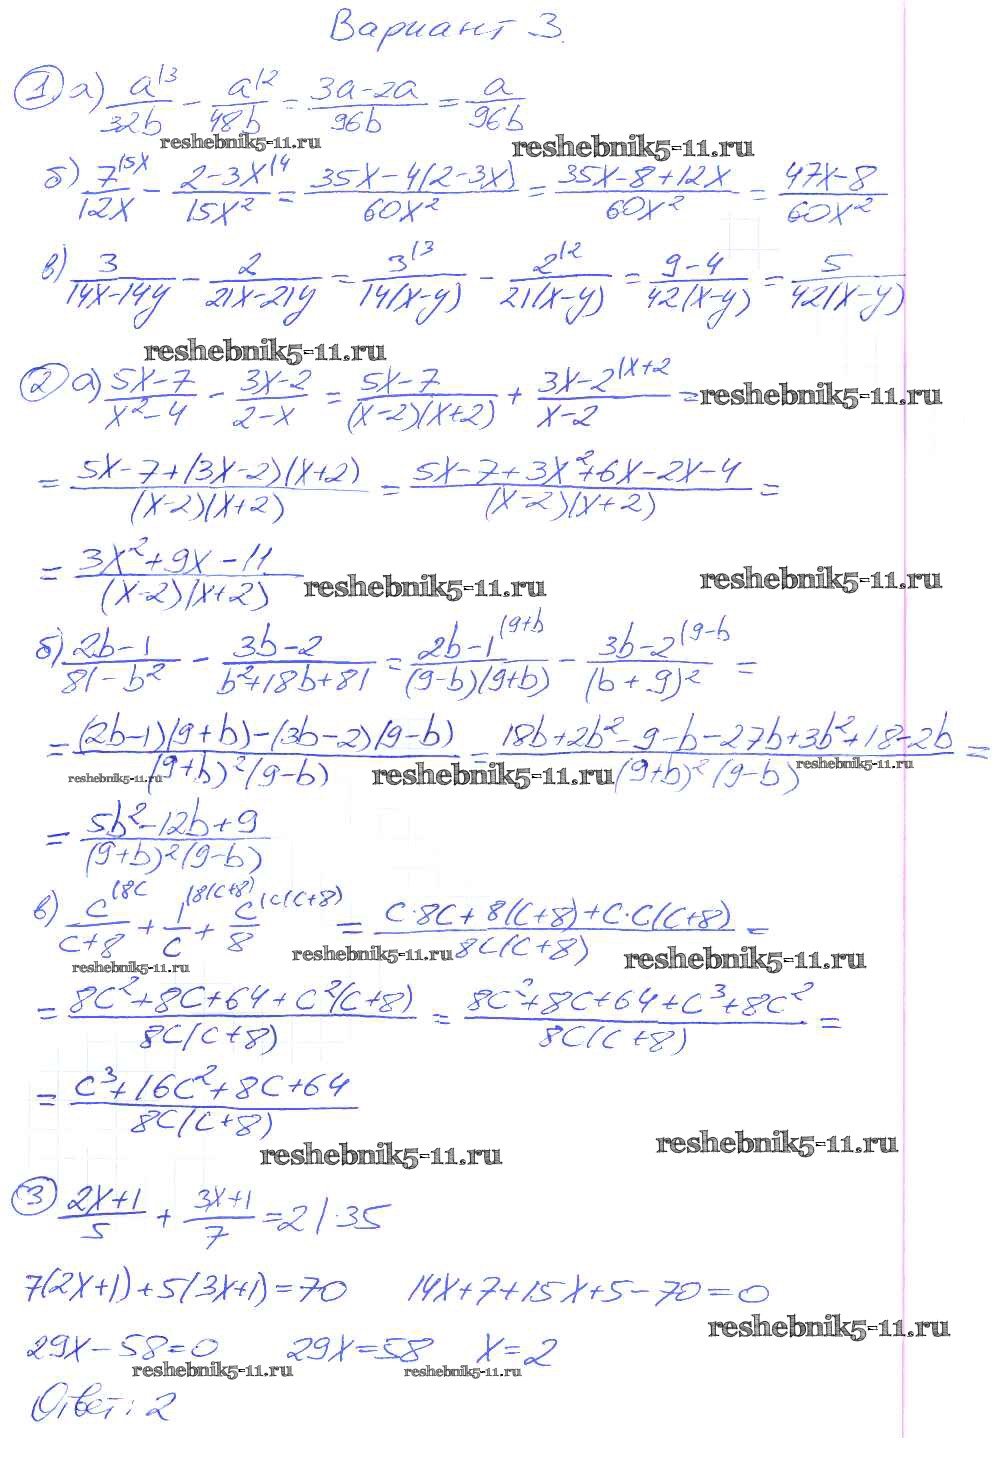 Вариант 3.
① а) a^{(3}/32b − a^{(2}/48b = (3a−2a)/96b = a/96b
reshebnik5-11.ru reshebnik5-11.ru
б) 7^{(5x}/12x − (2−3x^{(4})/15x² = (35x−4(2−3x))/60x² = (35x−8+12x)/60x² = (47x−8)/60x²
в) 3/(14x−14y) − 2/(21x−21y) = 3^{(3}/14(x−y) − 2^{(2}/21(x−y) = (9−4)/42(x−y) = 5/42(x−y)
reshebnik5-11.ru
② а) (5x−7)/(x²−4) − (3x−2)/(2−x) = (5x−7)/(x−2)(x+2) + (3x−2^{(x+2})/(x−2) =
reshebnik5-11.ru
= (5x−7+(3x−2)(x+2))/(x−2)(x+2) = (5x−7+3x²+6x−2x−4)/(x−2)(x+2) =
= (3x²+9x−11)/(x−2)(x+2)
reshebnik5-11.ru reshebnik5-11.ru
б) (2b−1)/(81−b²) − (3b−2)/(b²+18b+81) = (2b−1^{(9+b})/(9−b)(9+b) − (3b−2^{(9−b})/(b+9)² =
= ((2b−1)(9+b)−(3b−2)(9−b))/(9+b)²(9−b) = (18b+2b²−9−b−27b+3b²+18−2b)/(9+b)²(9−b) =
reshebnik5-11.ru reshebnik5-11.ru reshebnik5-11.ru
= (5b²−12b+9)/(9+b)²(9−b)
в) c^{(8c}/(c+8) + 1^{(8(c+8)}/c + c^{(c(c+8)}/8 = (c·8c+8(c+8)+c·c(c+8))/8c(c+8) =
reshebnik5-11.ru reshebnik5-11.ru reshebnik5-11.ru
= (8c²+8c+64+c²(c+8))/8c(c+8) = (8c²+8c+64+c³+8c²)/8c(c+8) =
= (c³+16c²+8c+64)/8c(c+8)
reshebnik5-11.ru reshebnik5-11.ru
③ (2x+1)/5 + (3x+1)/7 = 2 | ·35
7(2x+1)+5(3x+1)=70 14x+7+15x+5−70=0
reshebnik5-11.ru
29x−58=0 29x=58 x=2
reshebnik5-11.ru reshebnik5-11.ru
Ответ: 2